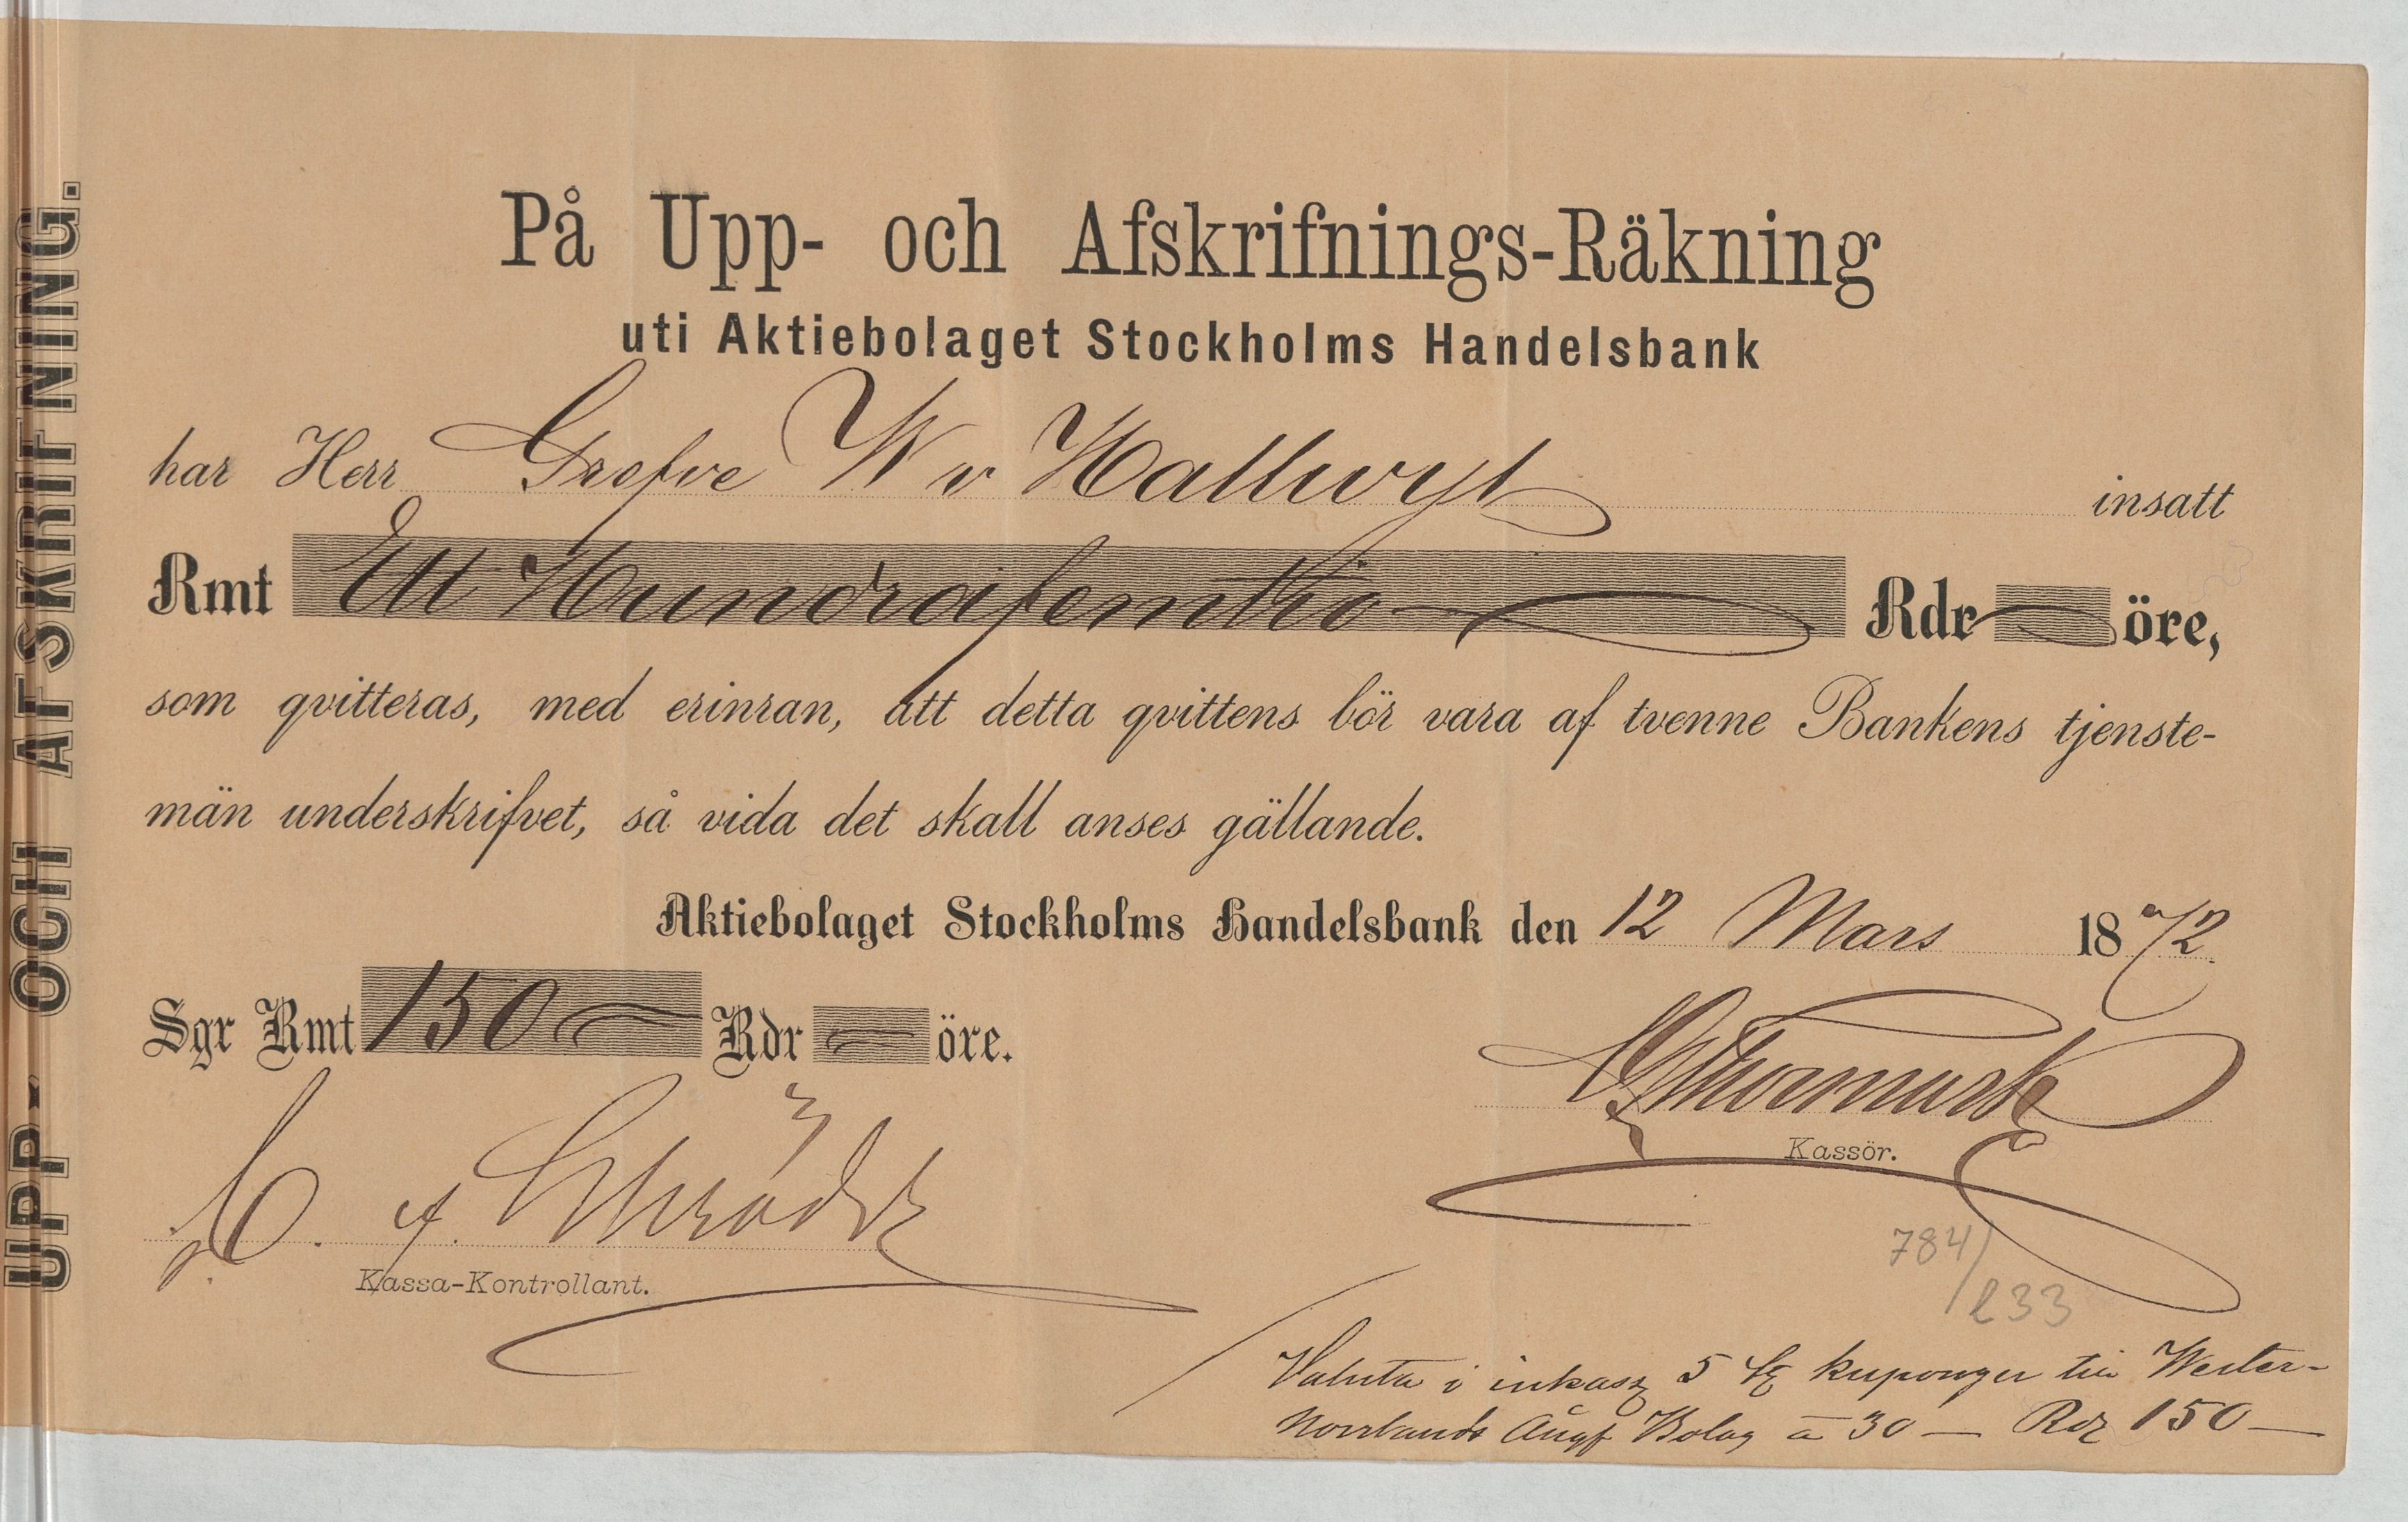 UPP- OCH AFSKRIFNING.
På Upp- och Afskrifnings-Räkning
uti Aktiebolaget Stockholms Handelsbank
har Herr Grefve W v Hallwyl insatt
Rmt Ett Hundrafemtio Rdr — öre,
som qvitteras, med erinran, att detta qvittens bör vara af tvenne Bankens tjenste-
män underskrifvet, så vida det skall anses gällande.
Aktiebolaget Stockholms Handelsbank den 12 Mars 1872.
Sgr Rmt 150 — Rdr — öre.
C. f. Schröder
Kassör.
Kassa-Kontrollant.
784/
233
Valuta i inkass 5 kuponger till Wester-
Norrlands Ångf Bolag a 30 — Rdr 150 —